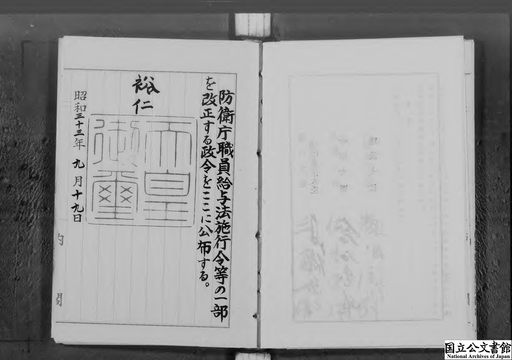 防衛庁職員給与法施行令等の一部
を改正する政令をここに公布する。
裕仁
天皇
御璽
昭和三十三年九月十九日
内閣
国立公文書館
National Archives of Japan